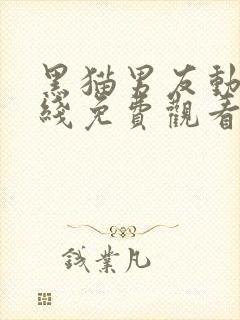 黑猫男友動
綫免費觀看
錢業凡